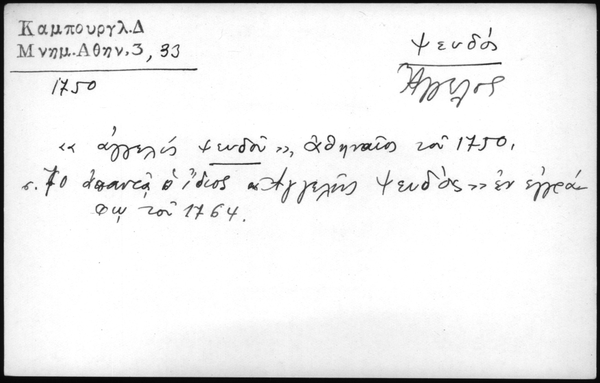 Καμπουργλ.Δ
Μνημ.Αθην.3, 33
1750
Ψευδός
Ἄγγελος
«ἀγγελής ψευδοῦ», Ἀθηναῖος τοῦ 1750.
σ. 70 ἀπαντᾷ ὁ ἴδιος «Ἀγγελῆς Ψευδός» ἐν ἐγγρά-
φῳ τοῦ 1764.